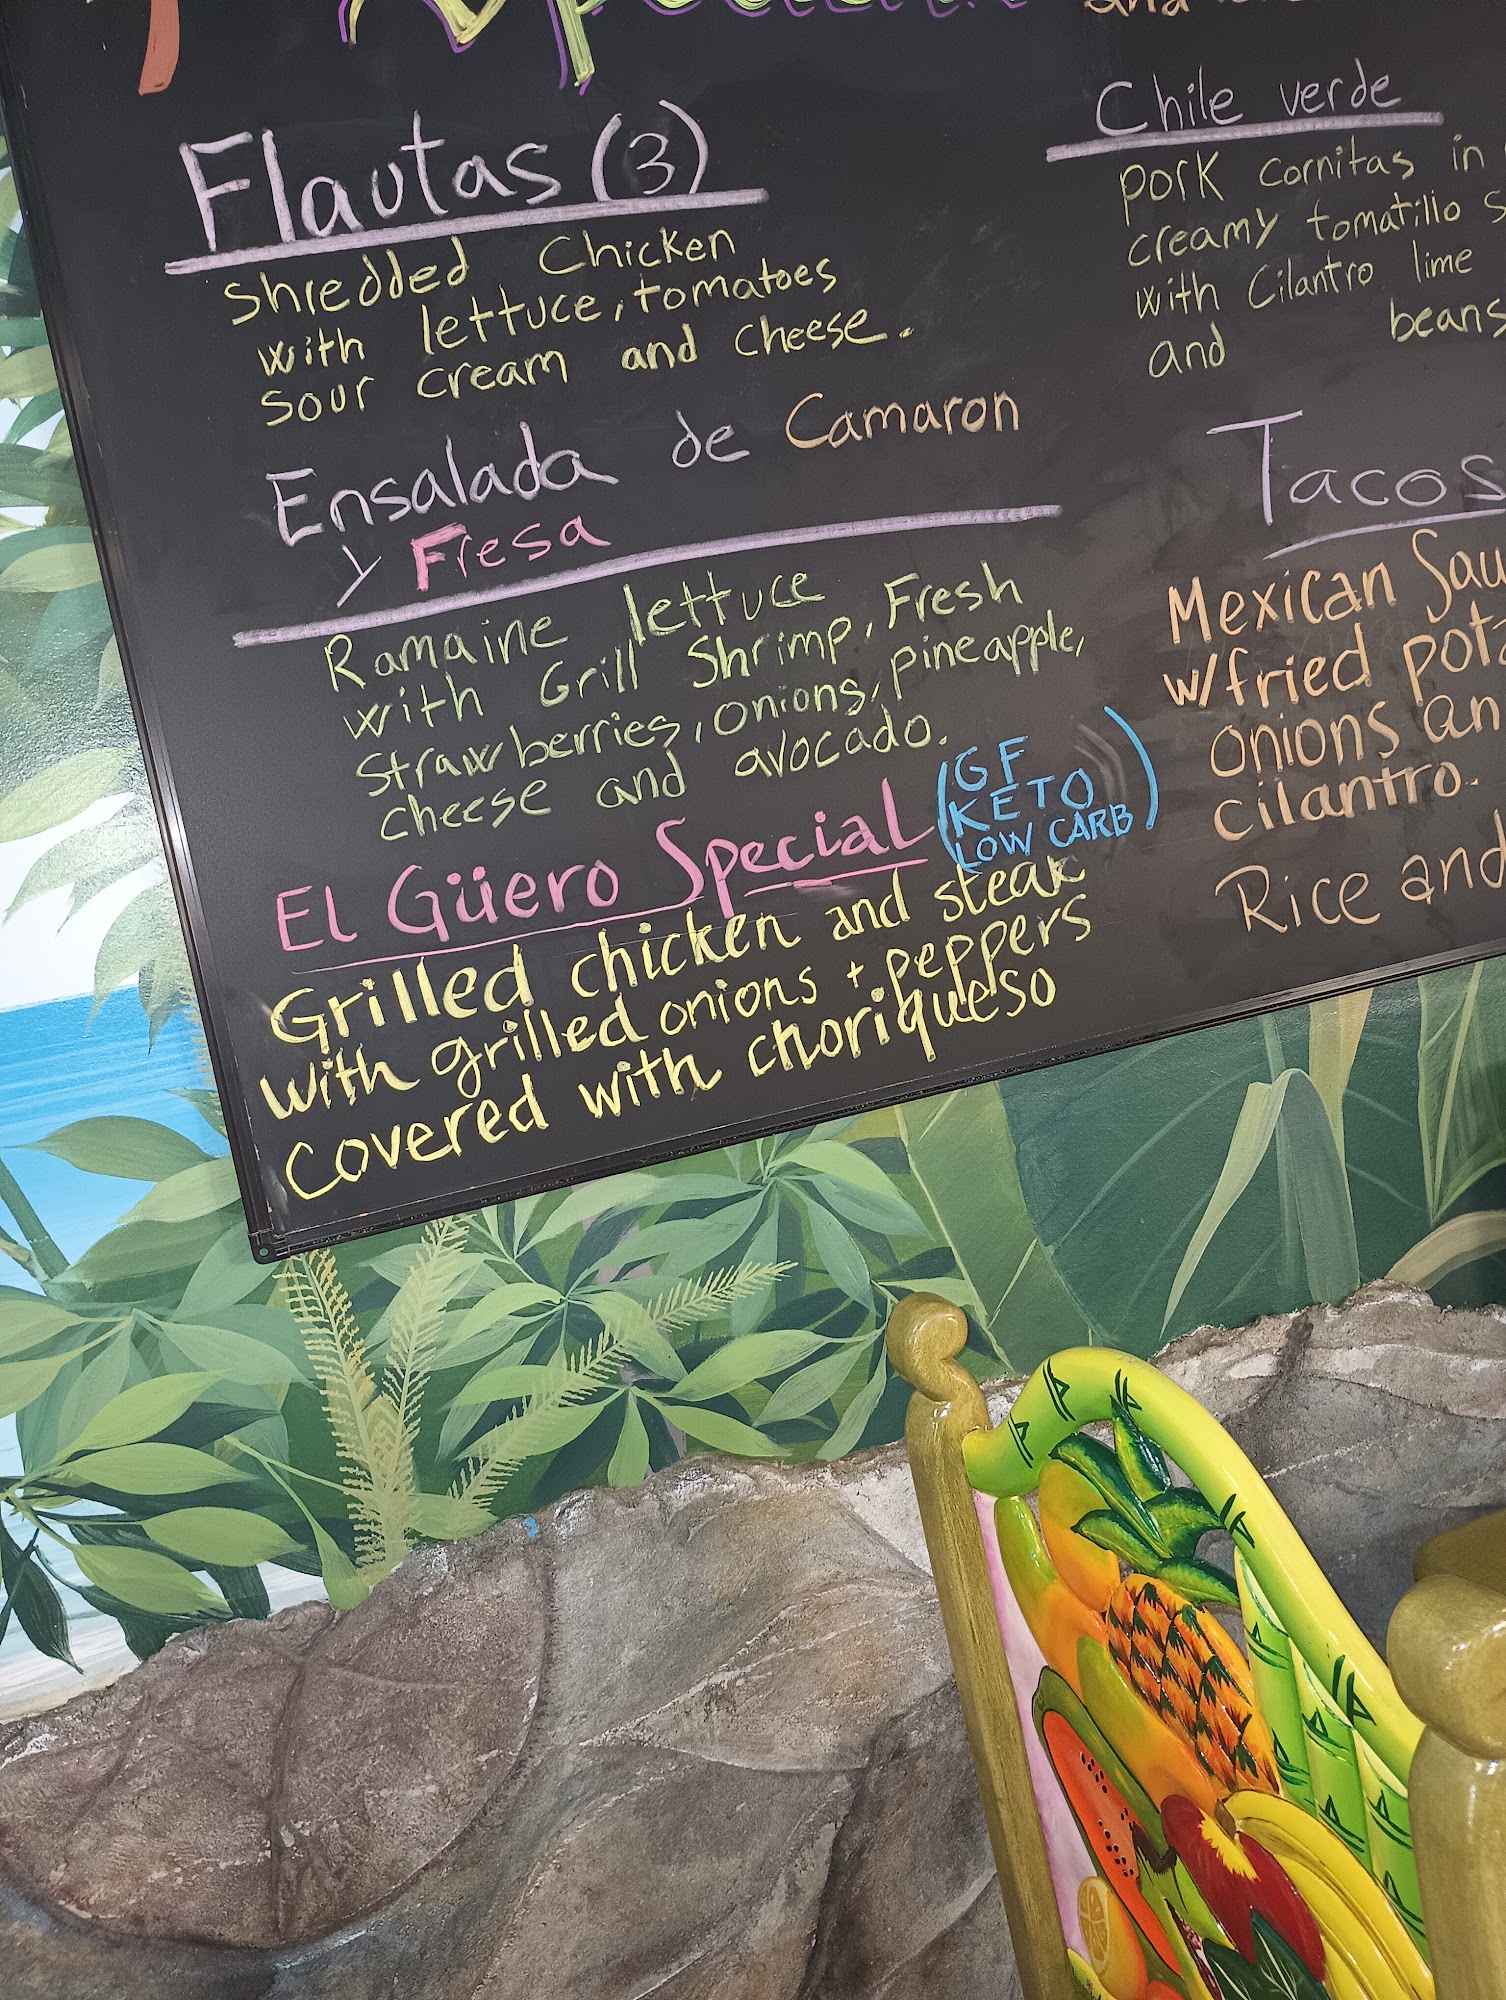 Flautas (3)
Shredded Chicken
with lettuce, tomatoes
sour cream and cheese.
Ensalada de Camaron
y Fresa
Ramaine lettuce
with Grill Shrimp, Fresh
strawberries, onions, pineapple,
cheese and avocado.
El Güero Special
(GF
KETO
LOW CARB)
Grilled chicken and steak
with grilled onions + peppers
covered with choriqueso
Chile verde
Pork cornitas in
creamy tomatillo
with Cilantro lime
and beans
Tacos
Mexican
w/fried
onions
cilantro.
Rice and